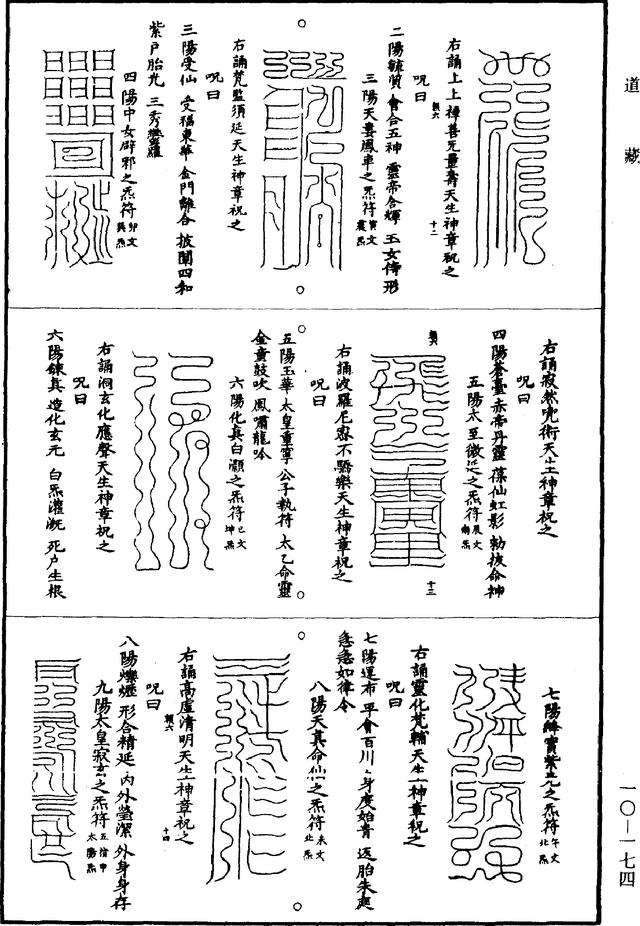 道藏
右誦上上禪善无量壽天生神章祝之
類六
十二
呪曰
二陽毓質 會合五神 靈帝合輝 玉女儔形
三陽天婁鳳車之炁符
寅文
震炁
右誦梵監須延天生神章祝之
呪曰
三陽受仙 受福東華 金門離合 披闡四和
紫戶胎光 三秀欝羅
四陽中女辟邪之炁符
卯文
巽炁
右誦寂然兜術天生神章祝之
呪曰
四陽蒼臺 赤帝丹靈 葆仙虹影 勅拔命神
五陽太至徽延之炁符
辰文
離炁
類六
十三
右誦波羅尼密不驕樂天生神章祝之
呪曰
五陽玉華 太皇童寧 公子執符 太乙命靈
金童鼓吹 鳳嘯龍吟
六陽化真白灝之炁符
巳文
坤炁
右誦洞玄化應聲天生神章祝之
呪曰
六陽鍊真 造化玄元 白炁灌溉 死戶生根
七陽絳實紫光之炁符
午文
北炁
右誦靈化梵輔天生神章祝之
呪曰
七陽運布 平會百川 身度始青 返胎朱奭
急急如律令
八陽天真命仙之炁符
未文
北炁
右誦高虛清明天生神章祝之
類六
十四
呪曰
八陽爍爍 形合精延 内外瑩潔 外身身存
九陽太皇寂玄之炁符
五指申
太陽炁
一〇—一七四